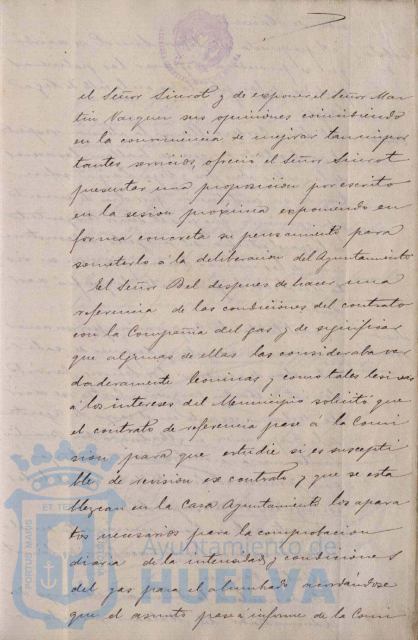 el Señor Siurot y de exponer el Señor Mar
tin Vazquez sus opiniones coincidiendo
en la conveniencia de mejorar tan impor
tantes servicios, ofreció el Señor Siurot
presentar una proposicion por escrito
en la sesion próxima exponiendo en
forma concreta su pensamiento para
someterlo á la deliberacion del Ayuntamiento
El Señor Bel despues de hacer una
referencia de las condiciones del contrato
con la Compañia del gas y de significar
que algunas de ellas las consideraba ver
daderamente leoninas y como tales lesivas
á los intereses del Municipio solicitó que
el contrato de referencia pase á la Comi
sion para que estudie si es suscepti
ble de revision ese contrato y que se esta
blezcan en la Casa Ayuntamiento los apara
tos necesarios para la comprobacion
diaria de la intensidad y condiciones
del gas para el alumbrado acordándose
que el asunto pase á informe de la Comi
Ayuntamiento de
HUELVA
PORTUS MARIS
ET TERRÆ
CUSTODIA